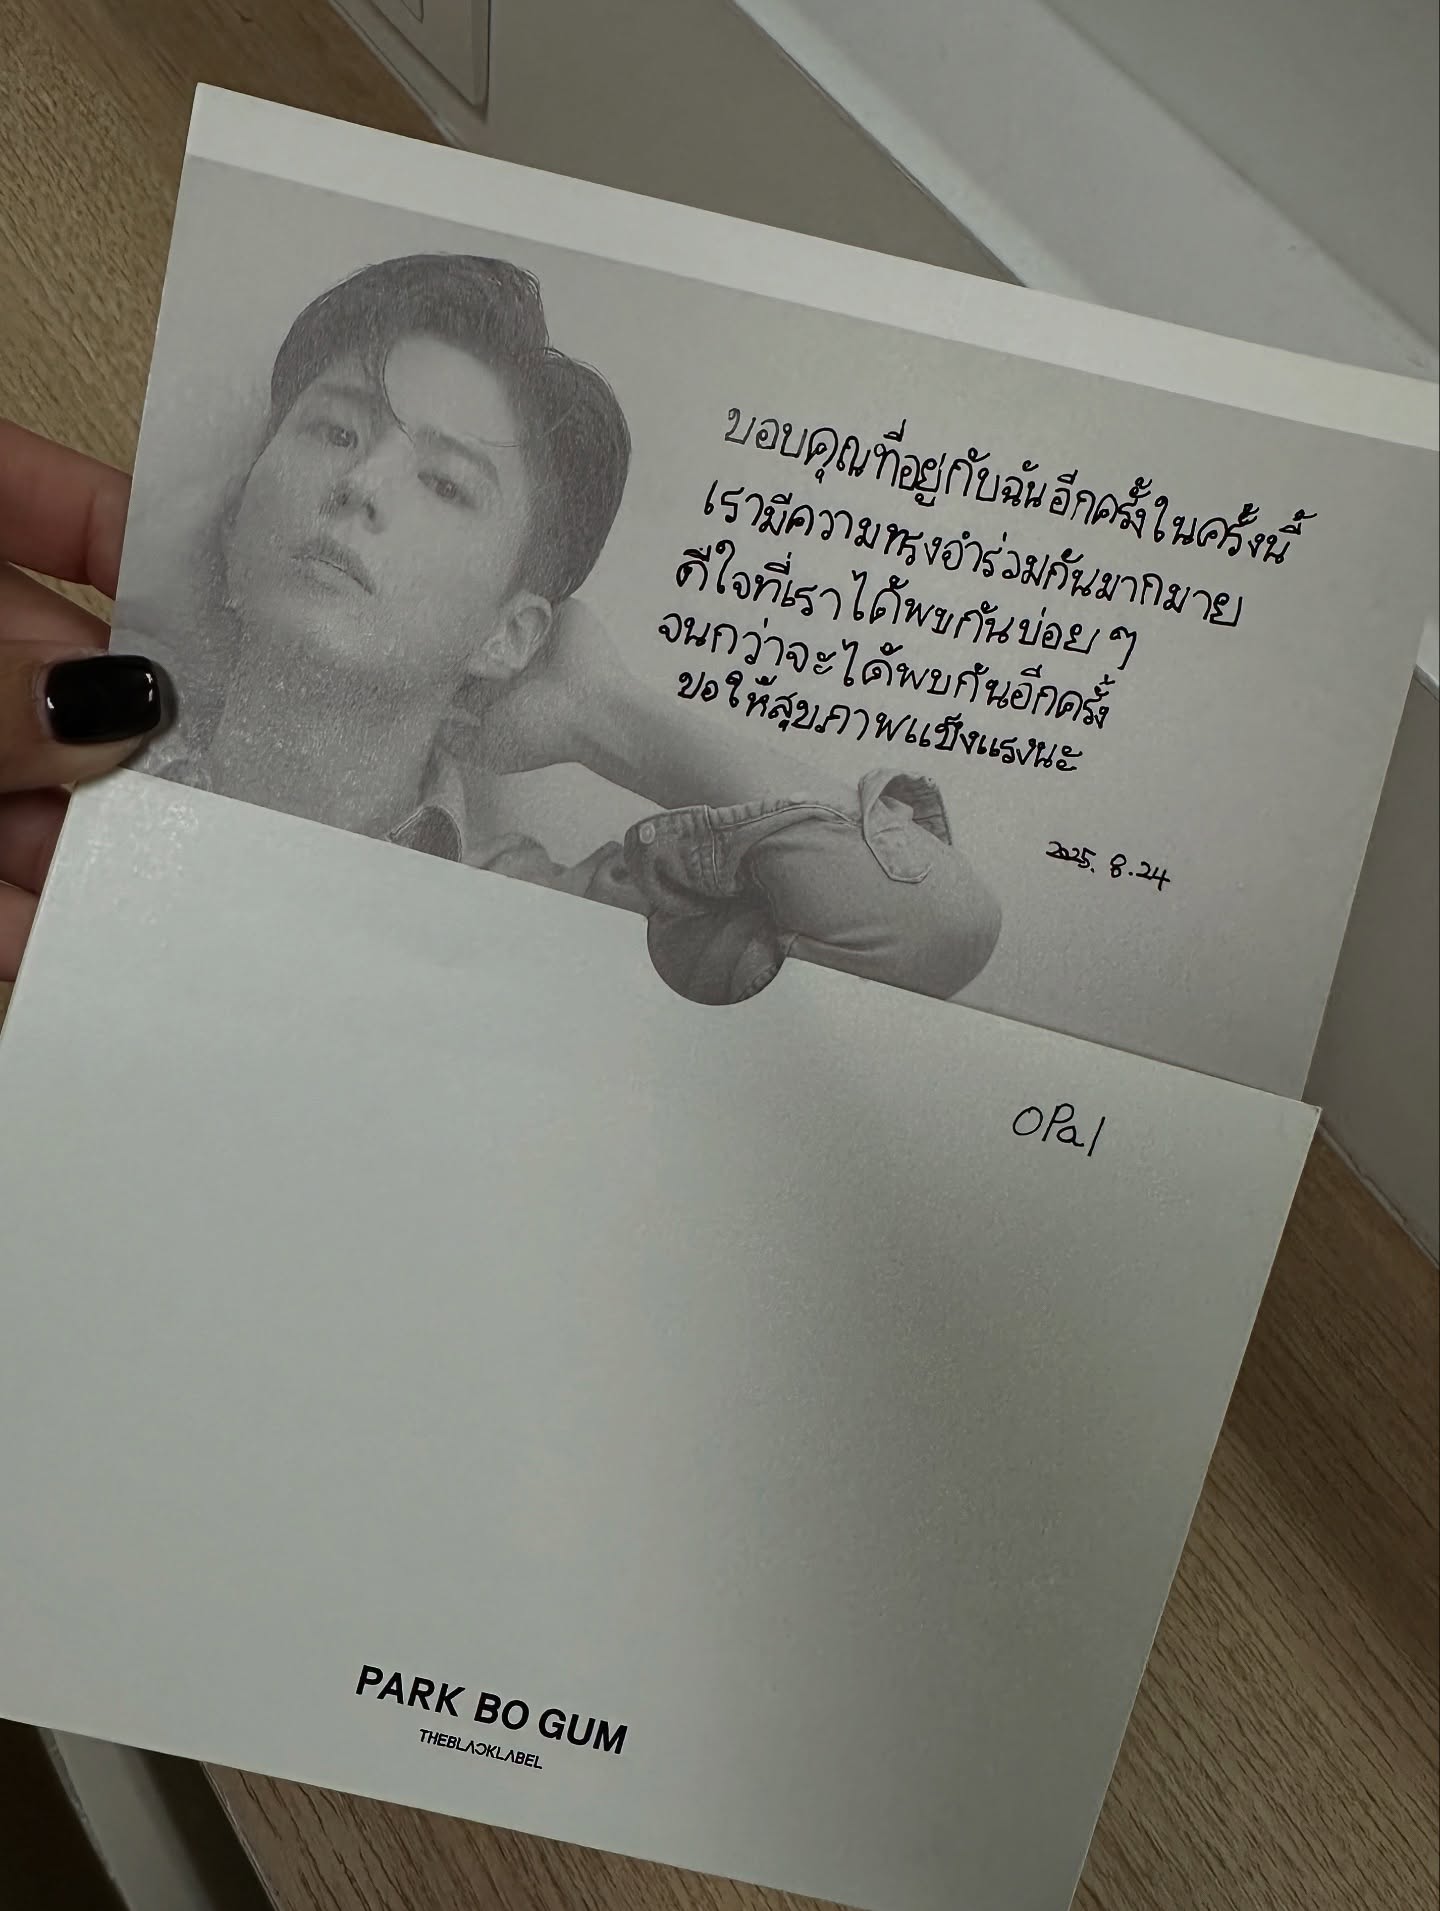 ขอบคุณที่อยู่กับฉันอีกครั้งในครั้งนี้
เรามีความทรงจำร่วมกันมากมาย
ดีใจที่เราได้พบกันบ่อย ๆ
จนกว่าจะได้พบกันอีกครั้ง
ขอให้สุขภาพแข็งแรงนะ
2025. 8.24
OPal
PARK BO GUM
THEBLACKLABEL